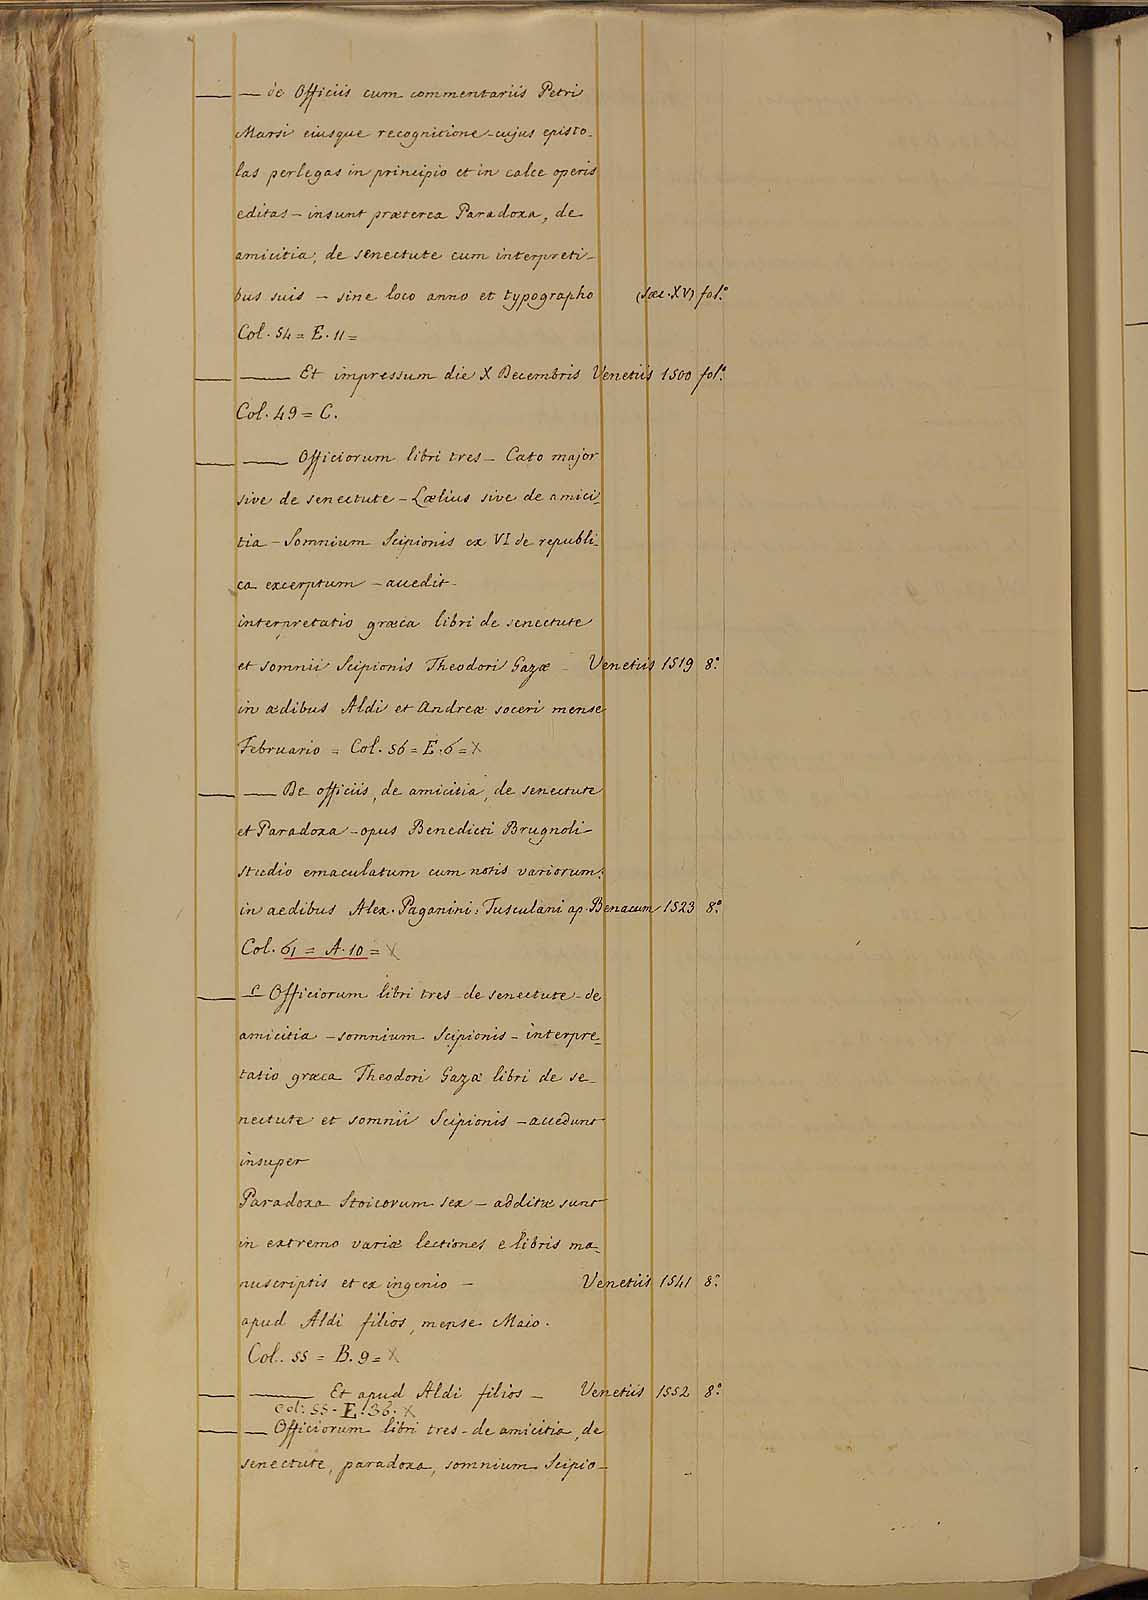 — — de Officiis cum commentariis Petri
Marsi eiusque recognitione - cujus episto-
las perlegas in principio et in calce operis
editas - insunt præterea Paradoxa, de
amicitia, de senectute cum interpreti-
bus suis - sine loco anno et typographo (sæc. XV) fol.º
Col. 54 = E. 11 =
— — Et impressum die X Decembris Venetiis 1500 fol.º
Col. 49 = C.
— — Officiorum libri tres - Cato major
sive de senectute - Lælius sive de amici-
tia - Somnium Scipionis ex VI de republi-
ca excerptum - accedit -
interpretatio græca libri de senectute
et somnii Scipionis Theodori Gazæ - Venetiis 1519 8.º
in ædibus Aldi et Andreæ soceri mense
Februario = Col. 56 = E. 6 = X
— — De officiis, de amicitia, de senectute
et Paradoxa - opus Benedicti Brugnoli
studio emaculatum cum notis variorum:
in aedibus Alex. Paganini: Tusculani ap. Benacum 1523 8.º
Col. 61 = A. 10 = X
— — Officiorum libri tres - de senectute - de
amicitia - somnium Scipionis - interpre-
tatio græca Theodori Gazæ libri de se-
nectute et somnii Scipionis - accedunt
insuper
Paradoxa Stoicorum sex - additæ sunt
in extremo variæ lectiones e libris ma-
nuscriptis et ex ingenio - Venetiis 1541 8.º
apud Aldi filios, mense Maio.
Col. 55 = B. 9 = X
— — Et apud Aldi filios - Venetiis 1552 8.º
Col: 55 - E. 36. X
— — Officiorum libri tres - de amicitia, de
senectute, paradoxa, somnium Scipio-